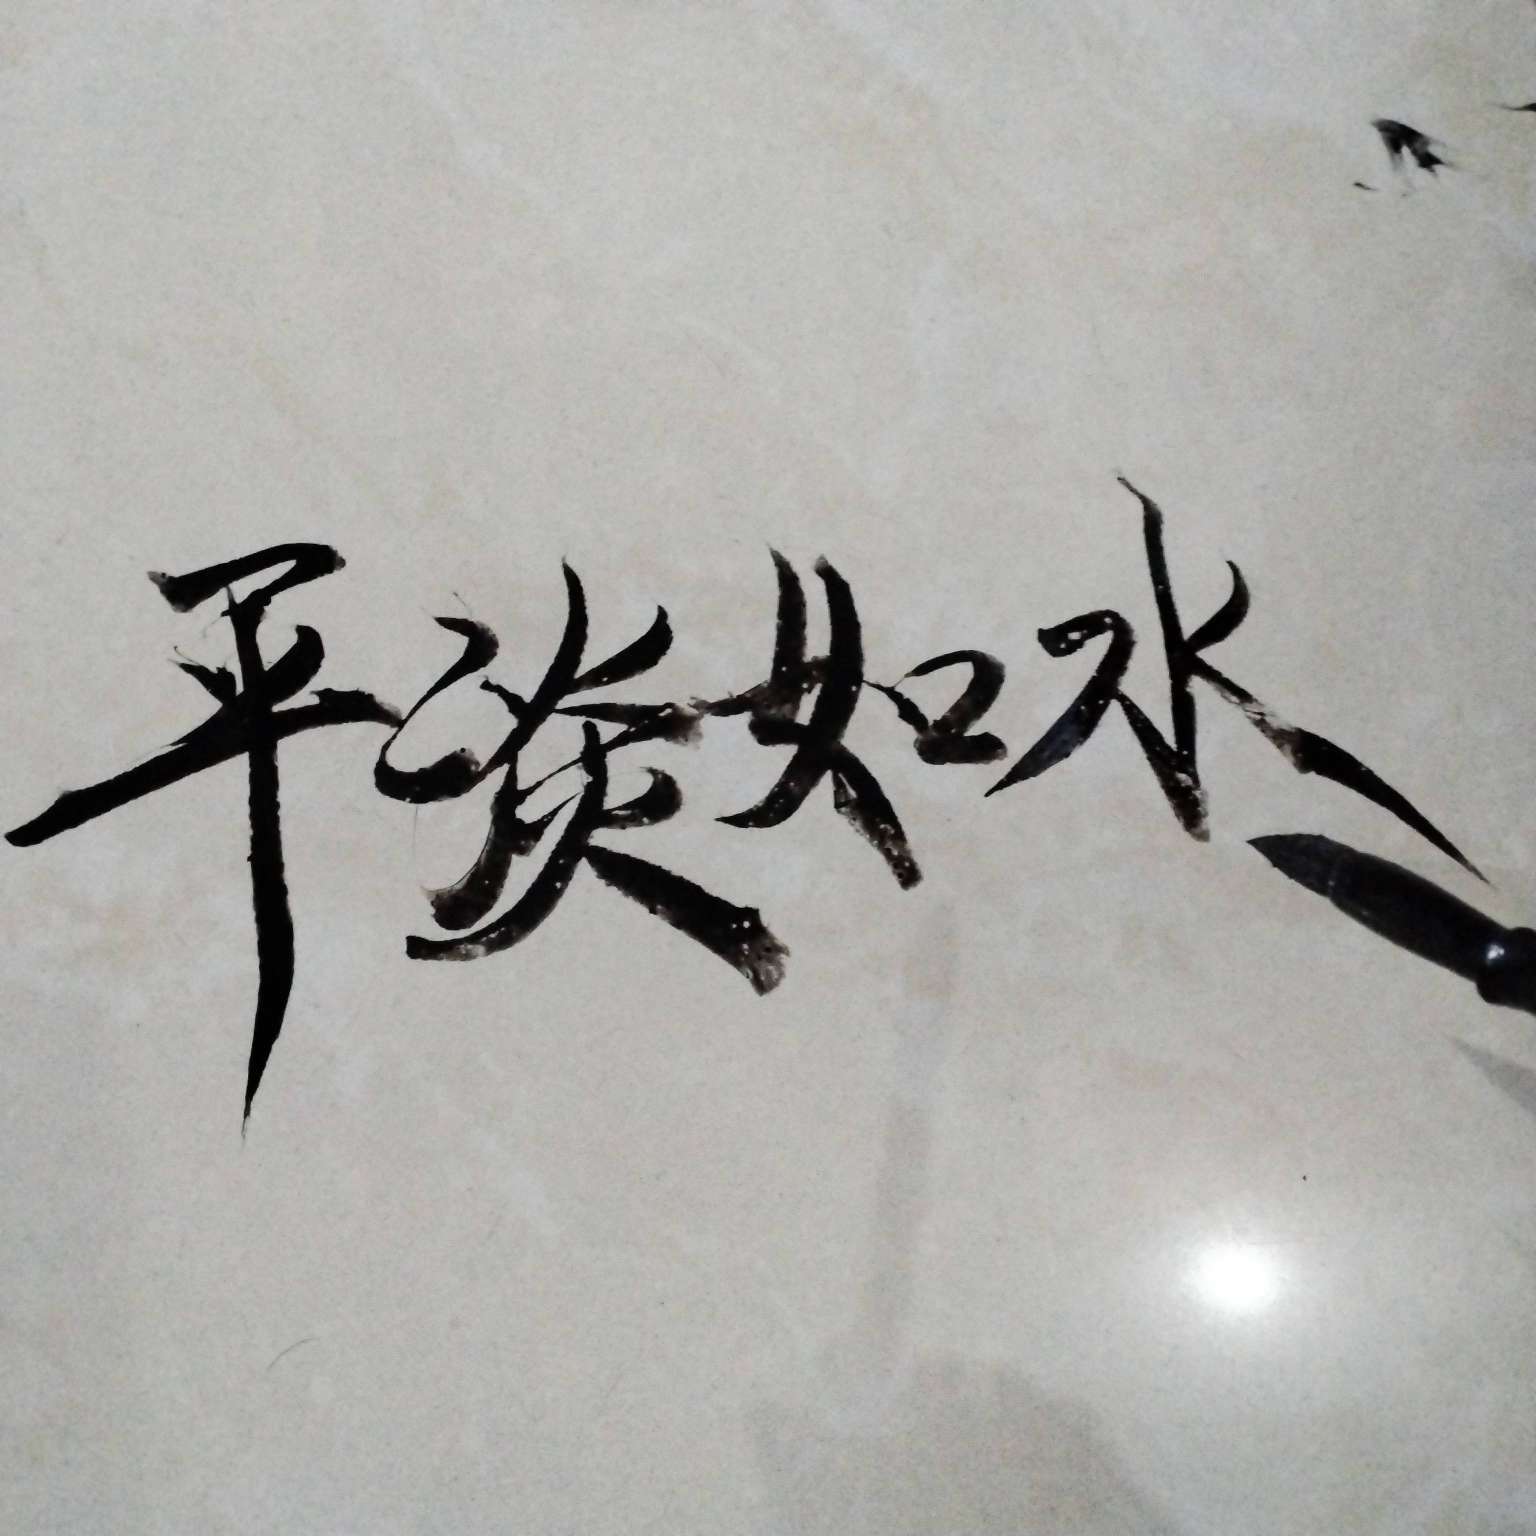 平淡如水